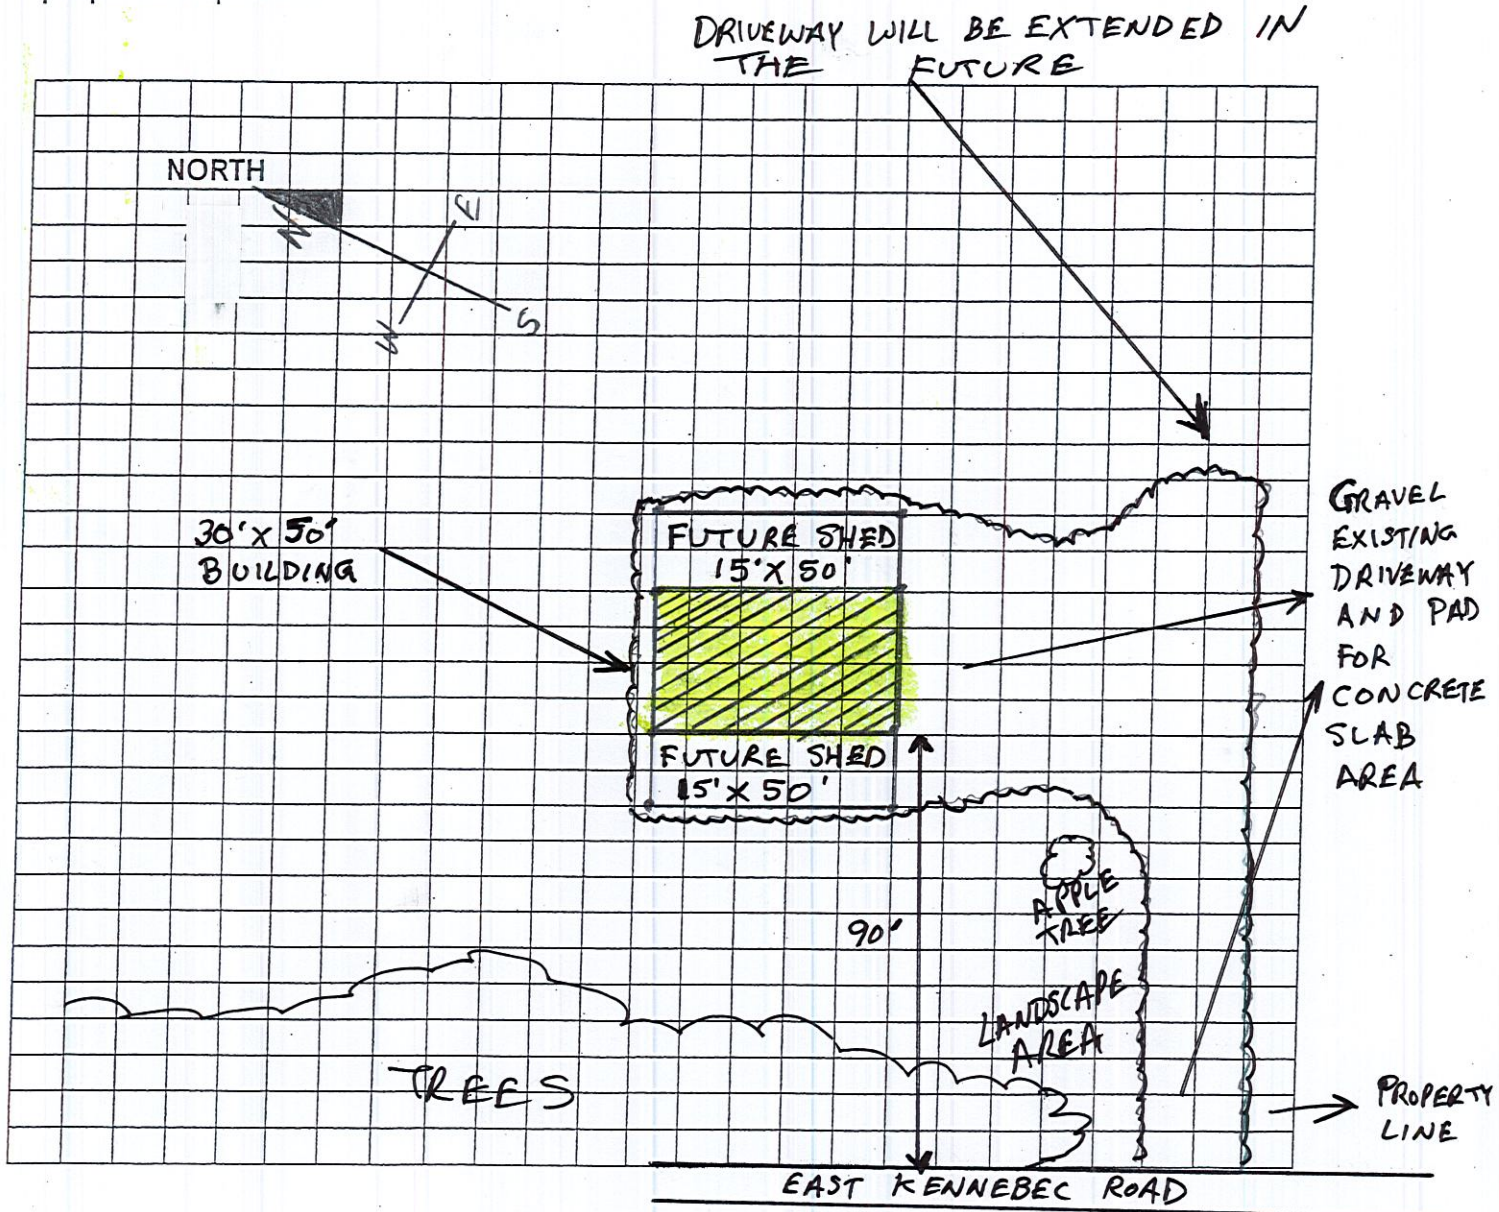 DRIVEWAY WILL BE EXTENDED IN
THE FUTURE
NORTH
N
E
W
S
30' X 50'
BUILDING
FUTURE SHED
15' X 50'
FUTURE SHED
15' X 50'
GRAVEL
EXISTING
DRIVEWAY
AND PAD
FOR
CONCRETE
SLAB
AREA
90'
APPLE
TREE
LANDSCAPE
AREA
TREES
PROPERTY
LINE
EAST KENNEBEC ROAD